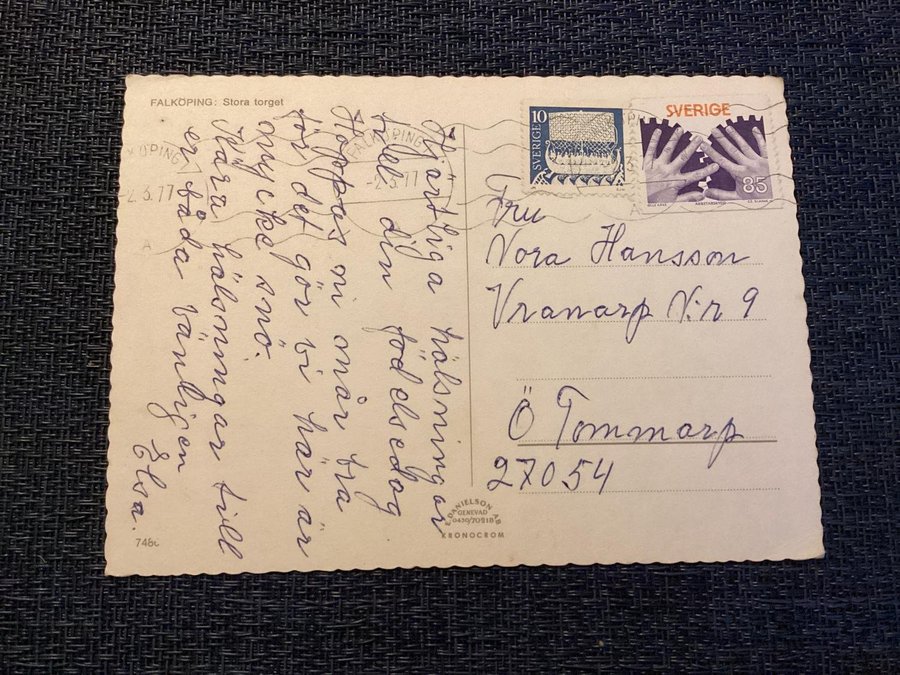 FALKÖPING: Stora torget
Hjärtliga hälsningar
till din födelsedag
Hoppas ni mår bra
för det gör vi här är
mycke snö.
Kära hälsningar till
er båda vänligen
Elsa.
KÖPING
2.3.77
A
FALKÖPING
-2.3.77
10
SVERIGE
SVERIGE
85
ARBETARSKYDD
Fru
Nora Hansson
Vranarp N:r 9
Ö Tommarp
27054
E. DANIELSON AB
GENEVAD
0430/70218
KRONOCROM